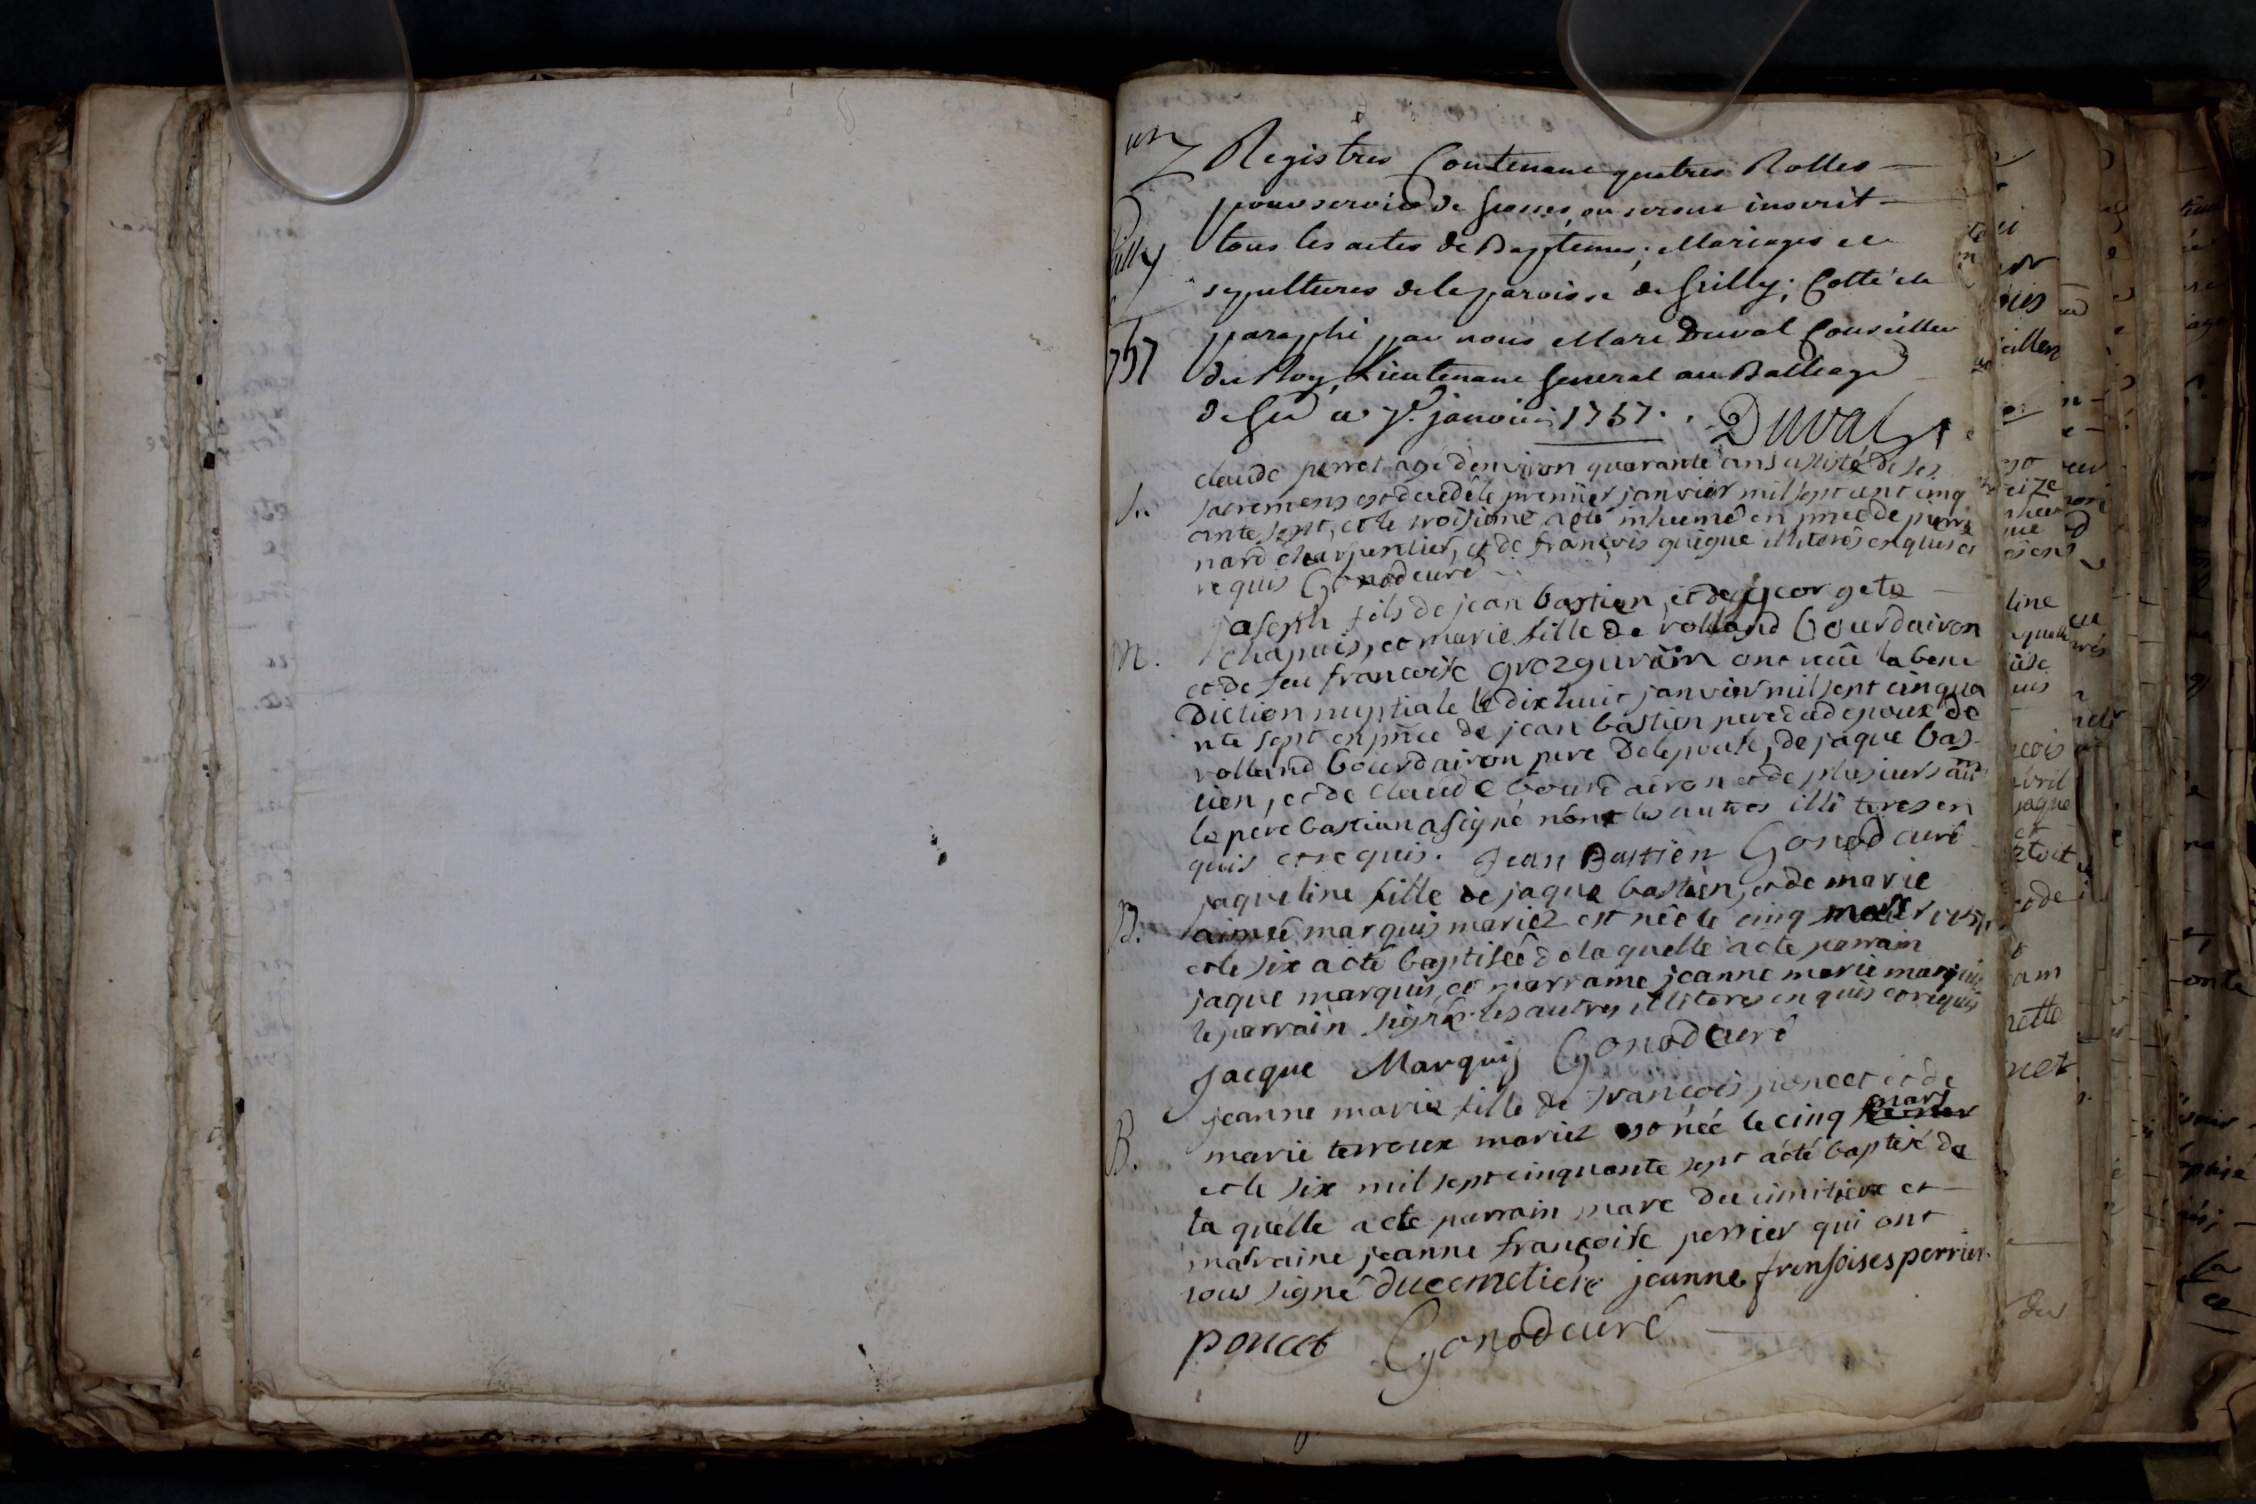 un
Registres Contenant quatres Rolles
pour servir de Grosses, ou seront inscrit
Gilly
tous les actes de Baptemes; Mariages et
sepultures de la paroisse de Grilly; Cotté et
paraphé par nous Marc Duval Conseiller
1757
du Roy Lieutenant General au Balliage
de Gex ce 7e. janvier 1757. Duval
claude perret agé d'environ quarante ans assisté de ses
S.. sacremens est decedé le premier janvier mil sept cent cinq
ante sept, et le troisieme a eté inhumé en pnce de pierre
nard charpentier, et de françois guigue illiterés enquis et
requis Gonod curé
joseph fils de jean bastien, et de georgete
M. chapuis, et marie fille de rolland bourdairon
et de feu francoise grozgurin ont reçu la bene
diction nuptiale le dixhuit janvier mil sept cinqua
nte sept en pnce de jean bastien pere dud epoux de
rolland bourdairon pere de lepouse, de jaque bas-
tien, et de claude bourdairon et de plusieurs au
le pere bastien a signé nont les autres illiteres en
quis et requis. Jean Bastien Gonod curé
jaqueline fille de jaque bastien, et de marie
B. aimée marquis mariez est née le cinq mars 1757,
et le six a eté baptisée de laquelle a ete parrain
jaque marquis, et marraine jeanne marie marquis
le parrain signé les autres illiteres enquis et requis
Jacque Marquis Gonod curé
jeanne marie fille de françois poncet et de
mars
B. marie terroux mariez est née le cinq fevrier
et le six mil sept cinquante sept a eté baptisé de
la quelle a ete parrain marc du cimitiere et
maraine jeanne françoise perrier qui ont
tous signé ducemetiere jeanne fransoises perrier
poncet Gonod curé